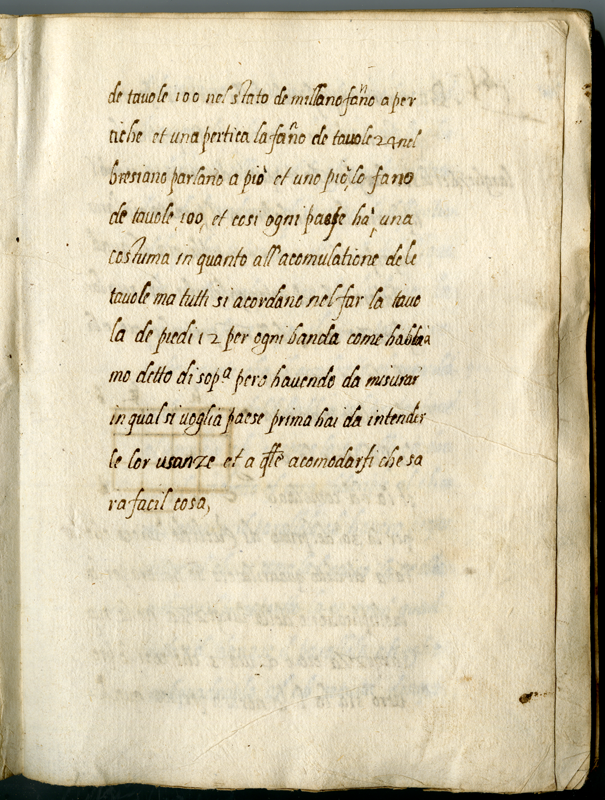 de tavole 100 nel stato de millano fano a per
tiche et una pertica la fano de tavole 24 nel
bresiano parlano a piò et uno piò, lo fano
de tavole 100, et cosi ogni paese hà, una
costuma in quanto all'acomulatione de le
tavole ma tutti si acordano nel far la tavo
la de piedi 12 per ogni banda come habbia
mo detto di sopª però havendo da misurar
in qual si voglia paese prima hai da intender
le lor usanze et a qlle acomodarsi che sa
ra facil cosa,